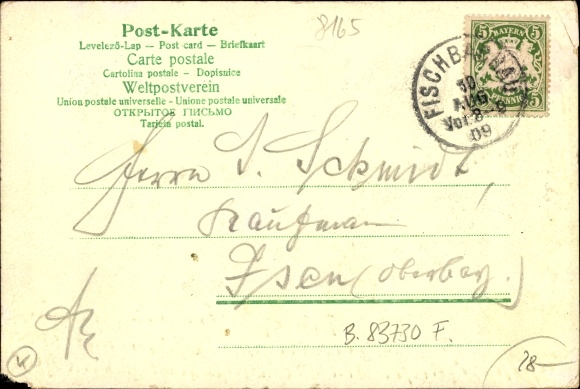 8165
Post-Karte
Levelező-Lap — Post card — Briefkaart
Carte postale
Cartolina postale – Dopisnice
Weltpostverein
Union postale universelle - Unione postale universale
ОТКРЫТОЕ ПИСЬМО
Tarjeta postal.
5 BAYERN 5
5 PFENNIG 5
FISCHBA
30
AUG
Vor. 8-9
09
Herrn J. Schmidt,
Kaufmann
Isen (Oberbay.)
B. 83730 F.
28-